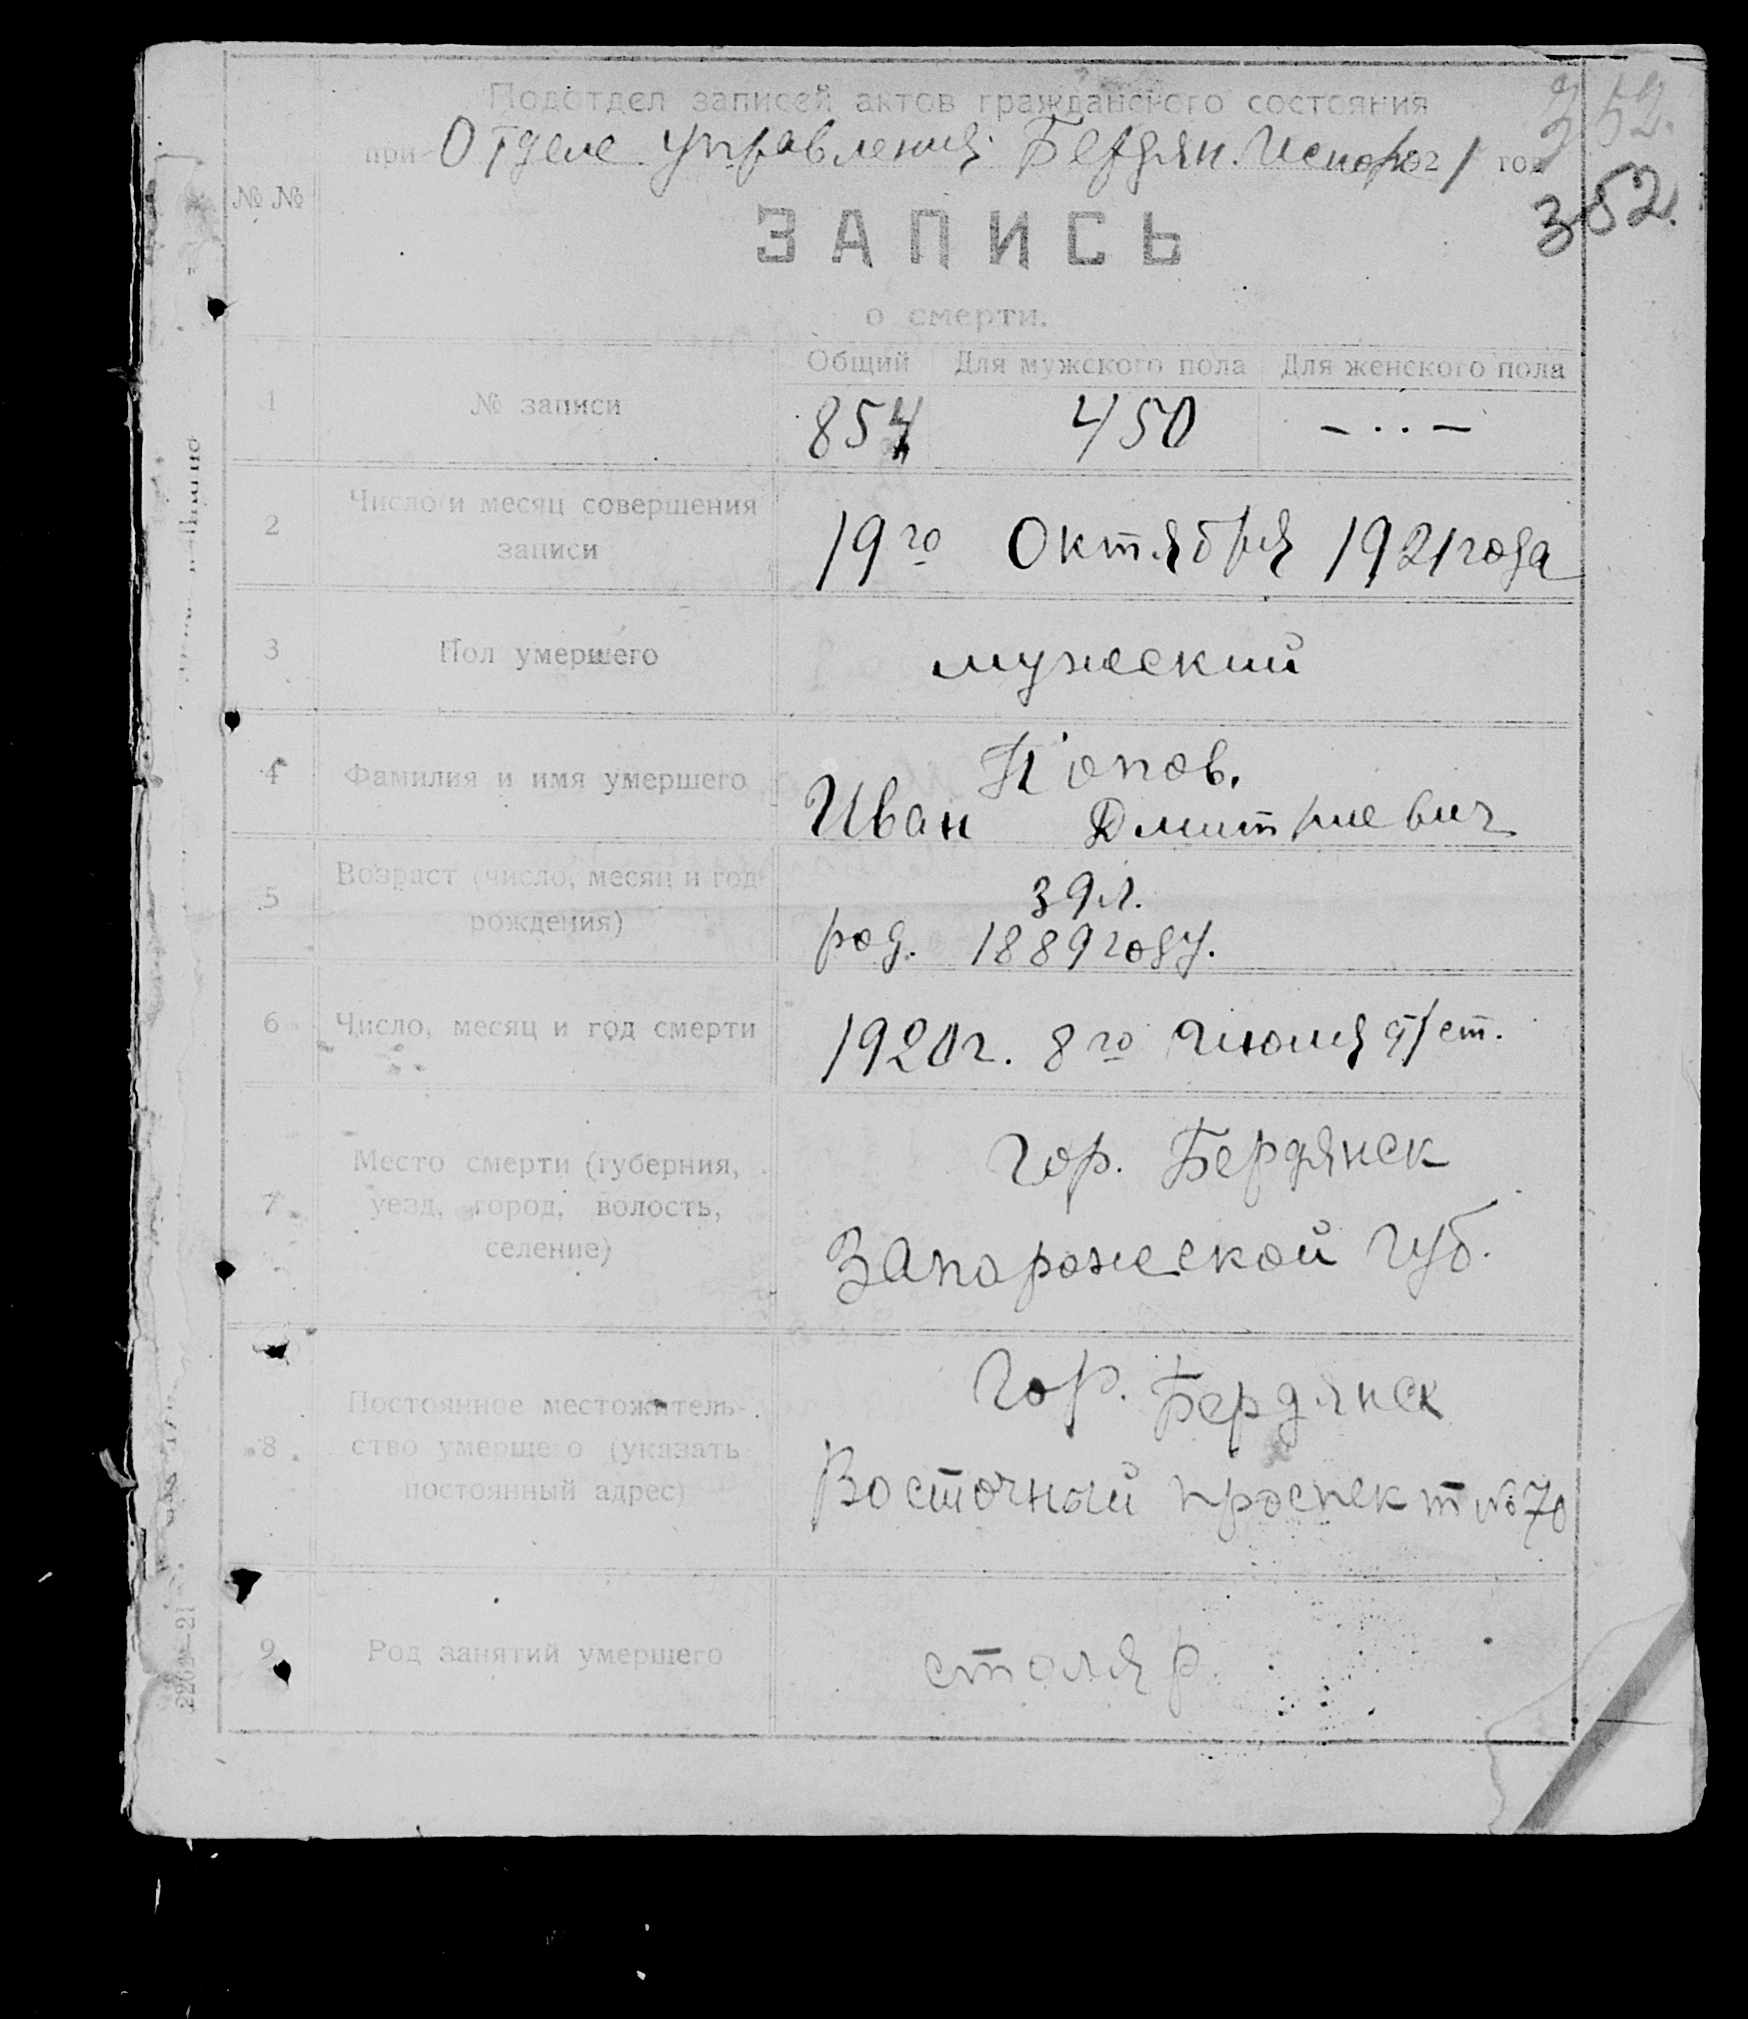 352.
Подотдел записей актов гражданского состояния
при Отделе Управления Бердян. 1921 год
352.
№ №
ЗАПИСЬ
о смерти.
Общий Для мужского пола Для женского пола
1 № записи 854 450 – · · –
2 Число и месяц совершения
записи 19го Октября 1921 года
3 Пол умершего мужеский
4 Фамилия и имя умершего Попов.
Иван Дмитриевич
5 Возраст (число, месяц и год
рождения) 39 л.
род. 1889 году.
6 Число, месяц и год смерти 1920 г. 8го ст.
7 Место смерти (губерния,
уезд, город, волость,
селение) Гор. Бердянск
Запорожеской Губ.
8 Постоянное местожитель-
ство умершего (указать
постоянный адрес) Гор. Бердянск
Восточный проспект № 70
9 Род занятий умершего столяр.